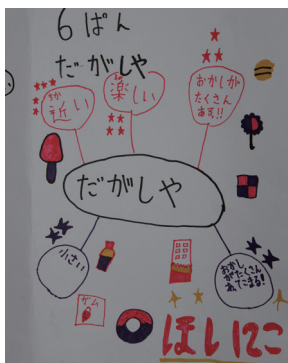 6ぱん
だがしや
新い
楽しい
おかしが
たくさん
ある!!
だがしや
小さい
おかし
がたくさん
あってこまる!
ゲーム
ほし12こ